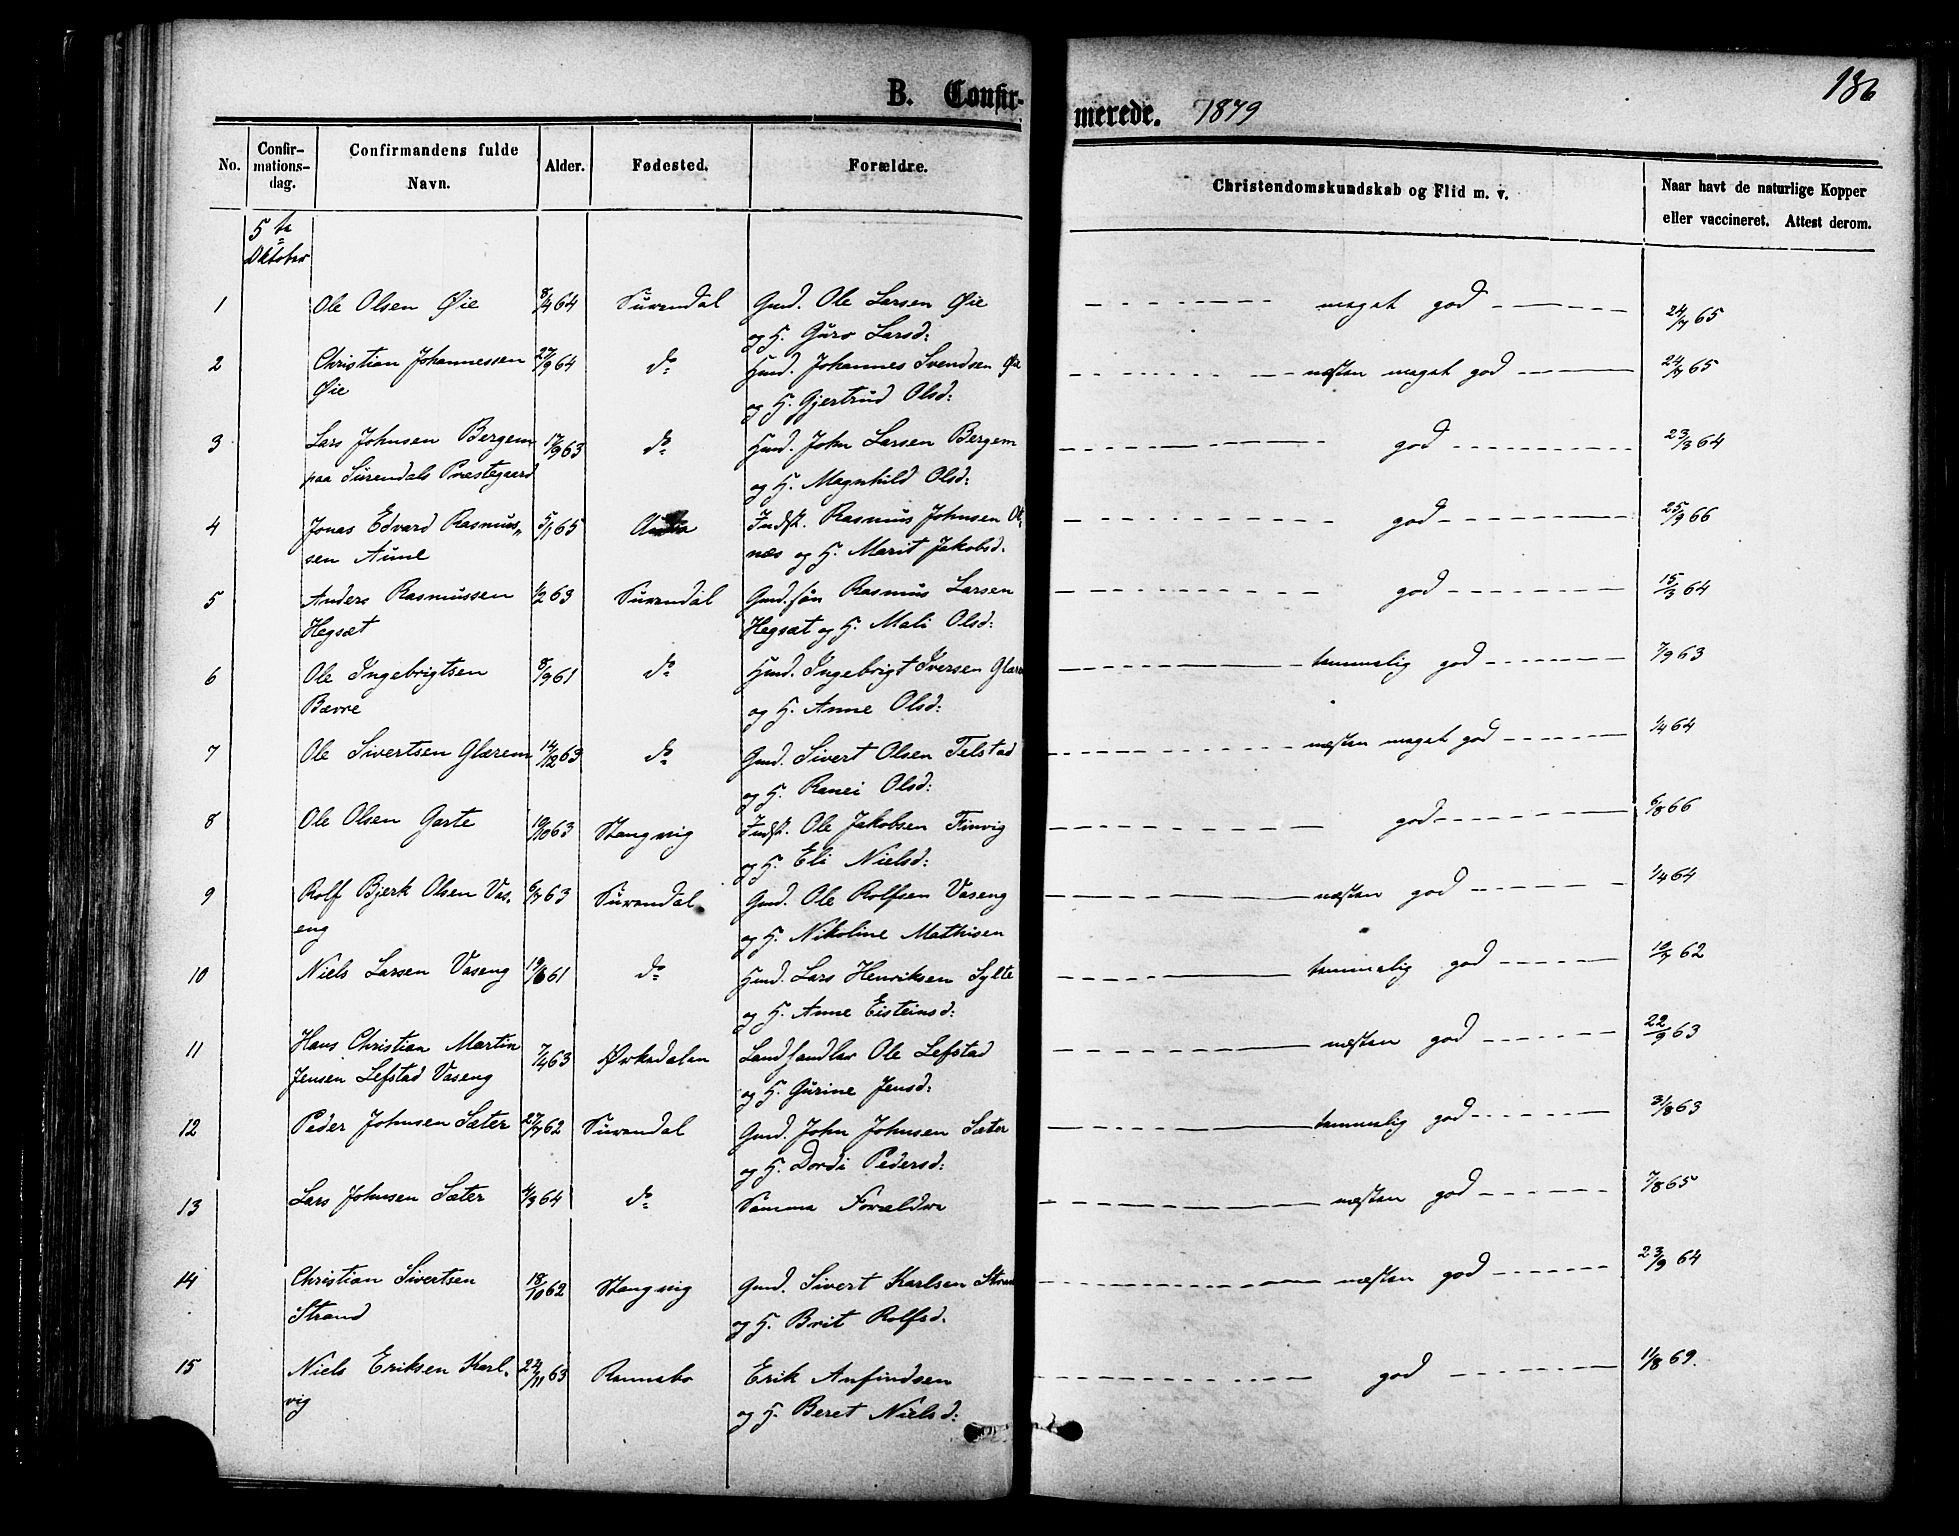 136
B. Confir-
merede. 1879
No.
Confir-
mations-
dag.
Confirmandens fulde
Navn.
Alder.
Fødested.
Forældre.
Christendomskundskab og Flid m. v.
Naar havt de naturlige Kopper
eller vaccineret. Attest derom.
5te
Oktober
1 Ole Olsen Øie 8/4 64 Surendal Gmd. Ole Larsen Øie meget god 24/7 65
og H. Guro Larsd:
2 Christian Johannessen 27/9 64 do Hmd. Johannes Svendsen Øie næsten meget god 24/7 65
Øie og H. Gjertrud Olsd:
3 Lars Johnsen Bergem 17/9 63 do Hmd. John Larsen Bergem god 23/3 64
paa Surendals Præstegaard og H. Magnhild Olsd:
4 Jonas Edvard Rasmus- 5/1 65 Indst. Rasmus Johnsen god 25/9 66
sen Aune næs og H. Marit Jakobsd.
5 Anders Rasmussen 1/2 63 Surendal Gmd.søn Rasmus Larsen god 15/3 64
Hegsæt Hegsæt og H. Mali Olsd:
6 Ole Ingebrigtsen 8/9 61 do Hmd. Ingebrigt Iversen temmelig god 7/9 63
Bævre og H. Anne Olsd:
7 Ole Sivertsen Glærem 14/12 63 do Gmd. Sivert Olsen Telstad næsten meget god 1/4 64
og H. Ranei Olsd:
8 Ole Olsen Garte 19/10 63 Stangvig Indst. Ole Jakobsen Finvig god 6/8 66
og H. Eli Nielsd:
9 Rolf Bjerk Olsen Vas- 6/7 63 Surendal Gmd. Ole Rolfsen Vaseng næsten god 1/4 64
eng og H. Nikoline Mathisen
10 Niels Larsen Vaseng 19/8 61 do Hmd. Lars Henriksen Sylte temmelig god 10/7 62
og H. Anne Eisteinsd:
11 Hans Christian Martin 7/4 63 Ørkedalen Landhandler Ole Lefstad næsten god 22/9 63
Jensen Lefstad Vaseng og H. Gurine Jensd:
12 Peder Johnsen Sæter 27/7 62 Surendal Gmd. John Johnsen Sæter temmelig god 31/8 63
og H. Dordi Pedersd:
13 Lars Johnsen Sæter 4/3 64 do Samme Forældre næsten god 7/8 65
14 Christian Sivertsen 18/10 62 Stangvig Gmd. Sivert Karlsen Strand næsten god 23/9 64
Strand og H. Brit Rolfsd.
15 Niels Eriksen Karl- 24/11 63 Rennebo Erik Anfindsen god 11/8 69.
vig og H. Beret Nielsd: